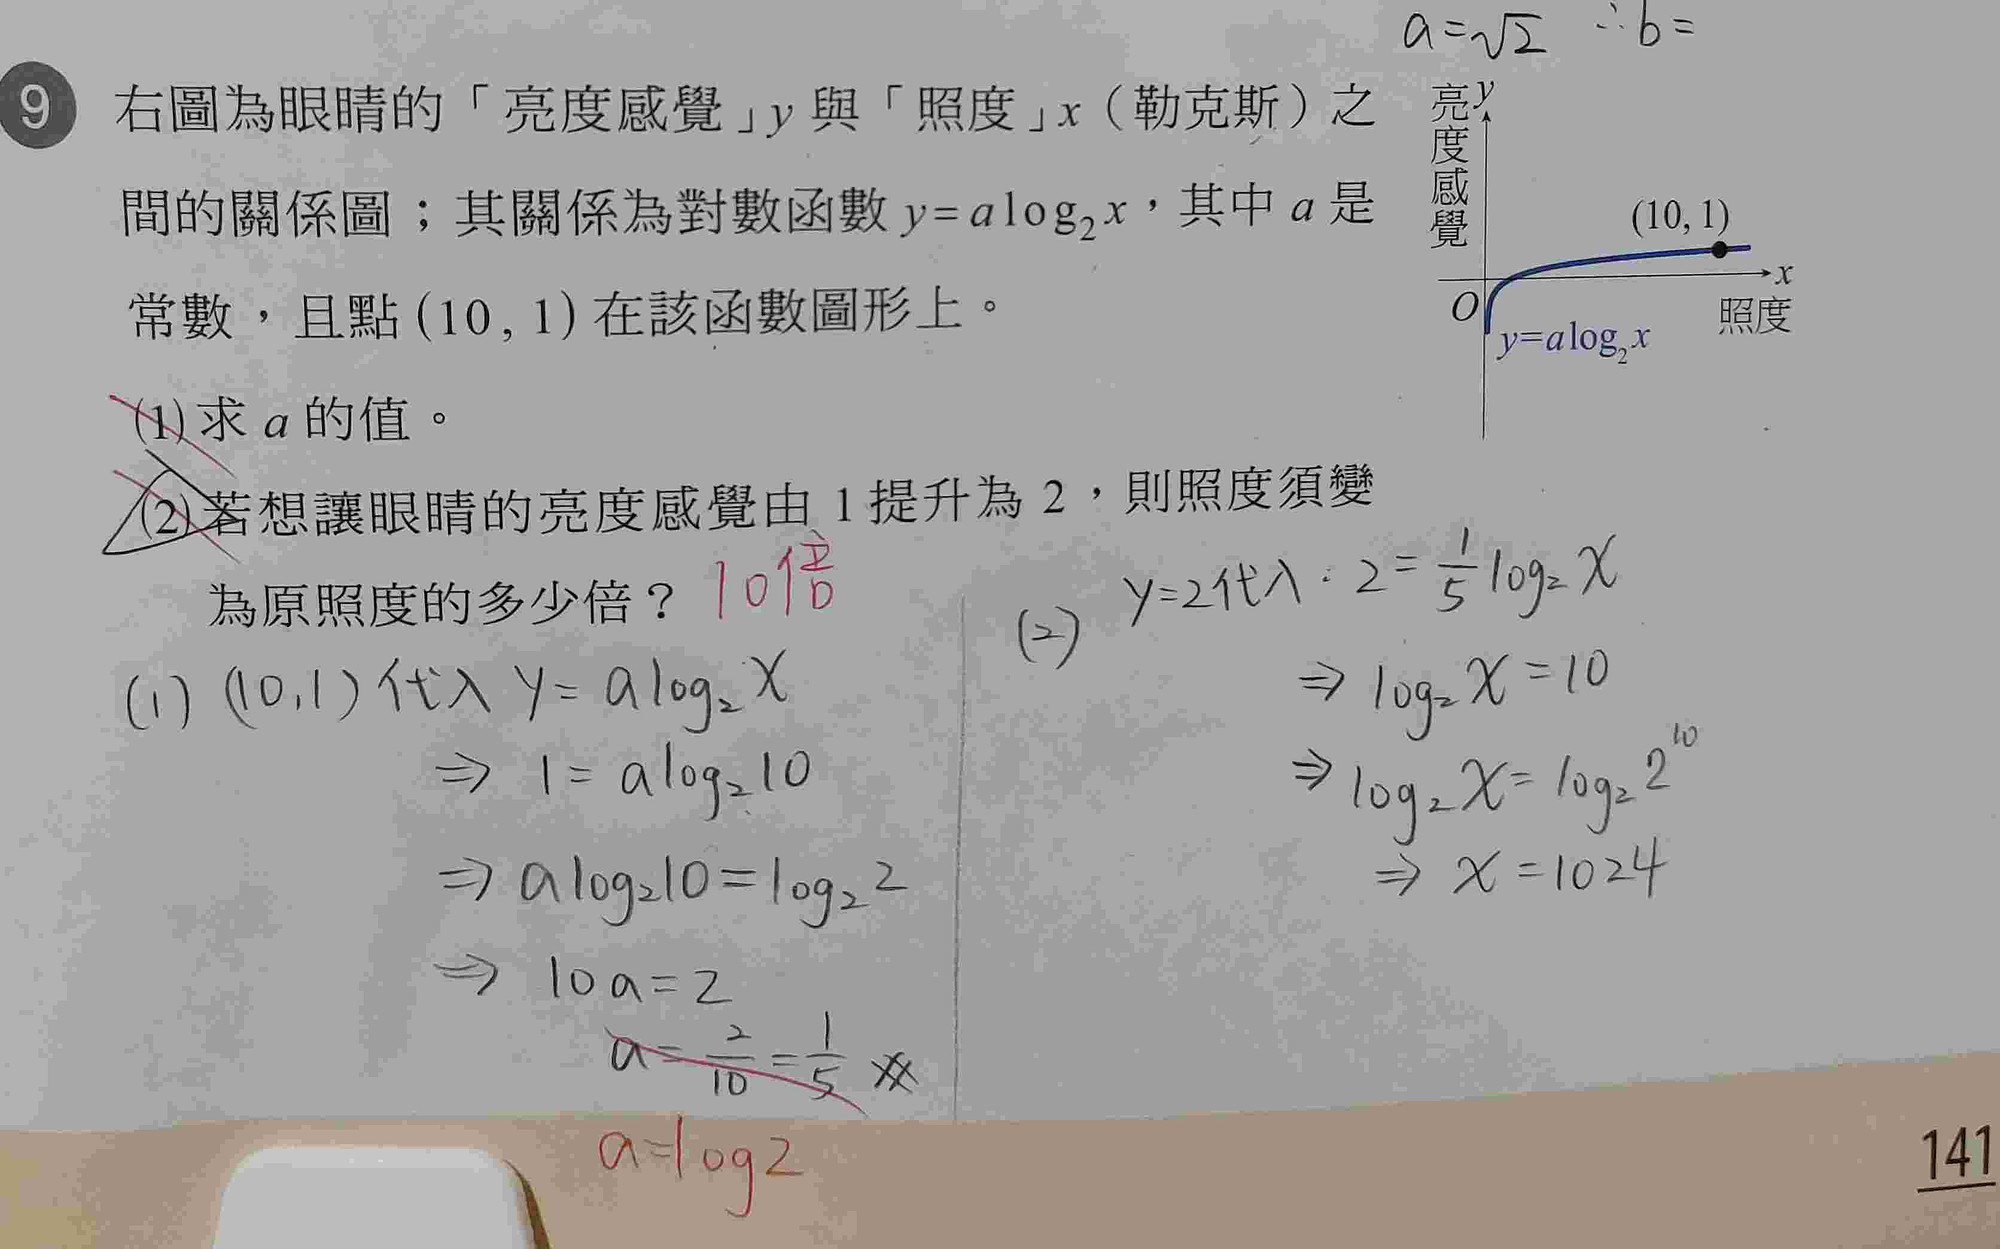 a=√2 ∴b=
9 右圖為眼睛的「亮度感覺」y與「照度」x(勒克斯)之
間的關係圖;其關係為對數函數y=alog₂x,其中a是
常數,且點(10,1)在該函數圖形上。
(1)求a的值。
(2)若想讓眼睛的亮度感覺由1提升為2,則照度須變
為原照度的多少倍? 10倍
亮度感覺
y
(10,1)
x
O
照度
y=alog₂x
(1) (10,1)代入 y=alog₂x
⇒ 1=alog₂10
⇒ alog₂10=log₂2
⇒ 10a=2
a=2/10=1/5
a=log2
(2) y=2代入: 2=1/5 log₂x
⇒ log₂x=10
⇒ log₂x=log₂2¹⁰
⇒ x=1024
141